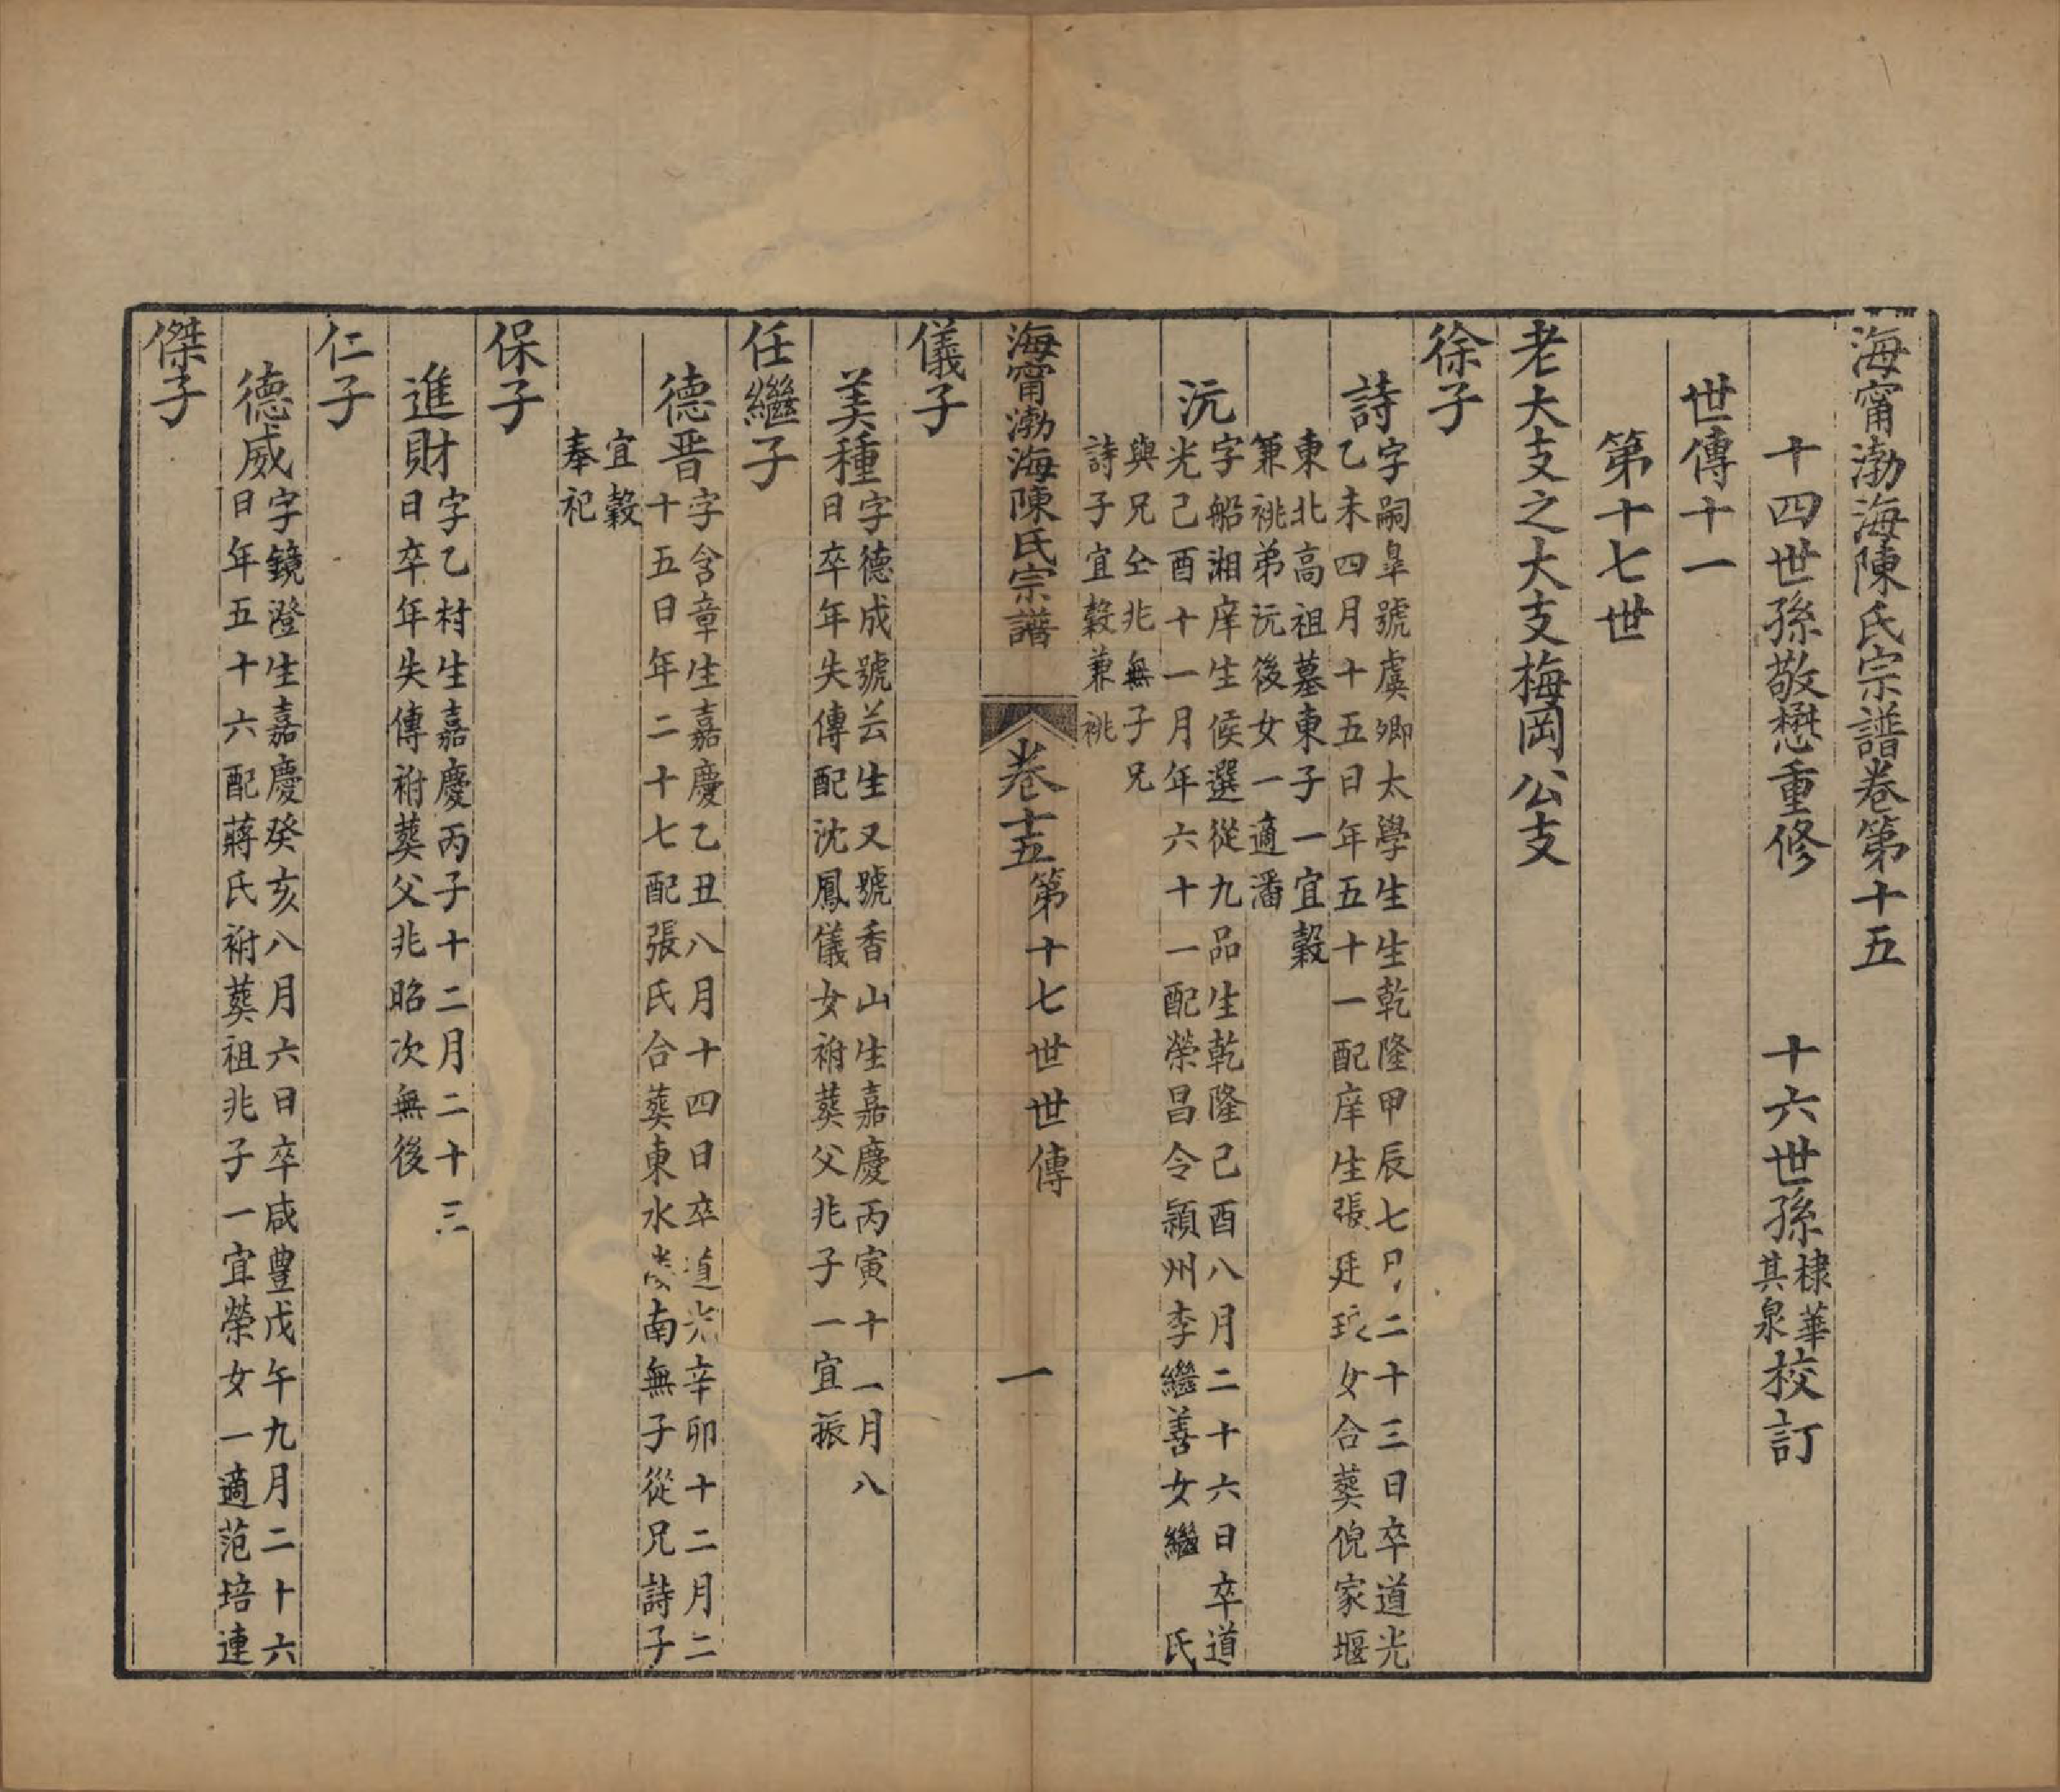 海甯渤海陳氏宗譜卷第十五
十四世孫敬懋重修 十六世孫棣華其泉校訂
世傳十一
第十七世
老大支之大支梅岡公支
徐子
詩
字嗣臯號虞卿太學生生乾隆甲辰七月二十三日卒道光
乙未四月十五日年五十一配庠生張廷女合葬倪家堰
東北高祖墓東子一宜穀
兼祧弟沅後女一適潘
沅
字船湘庠生候選從九品生乾隆己酉八月二十六日卒道
光己酉十一月年六十一配榮昌令潁州李繼善女繼 氏
與兄仝兆無子兄
詩子宜穀兼祧
海甯渤海陳氏宗譜 卷十五 第十七世世傳 一
儀子
美種
字德成號芸生又號香山生嘉慶丙寅十一月八
日卒年失傳配沈鳳儀女祔葬父兆子一宜振
任繼子
德晋
字含章生嘉慶乙丑八月十四日卒道光辛卯十二月二
十五日年二十七配張氏合葬東水南無子從兄詩子
宜穀
奉祀
保子
進財
字乙村生嘉慶丙子十二月二十三
日卒年失傳祔葬父兆昭次無後
仁子
德威
字鏡澄生嘉慶癸亥八月六日卒咸豐戊午九月二十六
日年五十六配蔣氏祔葬祖兆子一宜榮女一適范培連
傑子